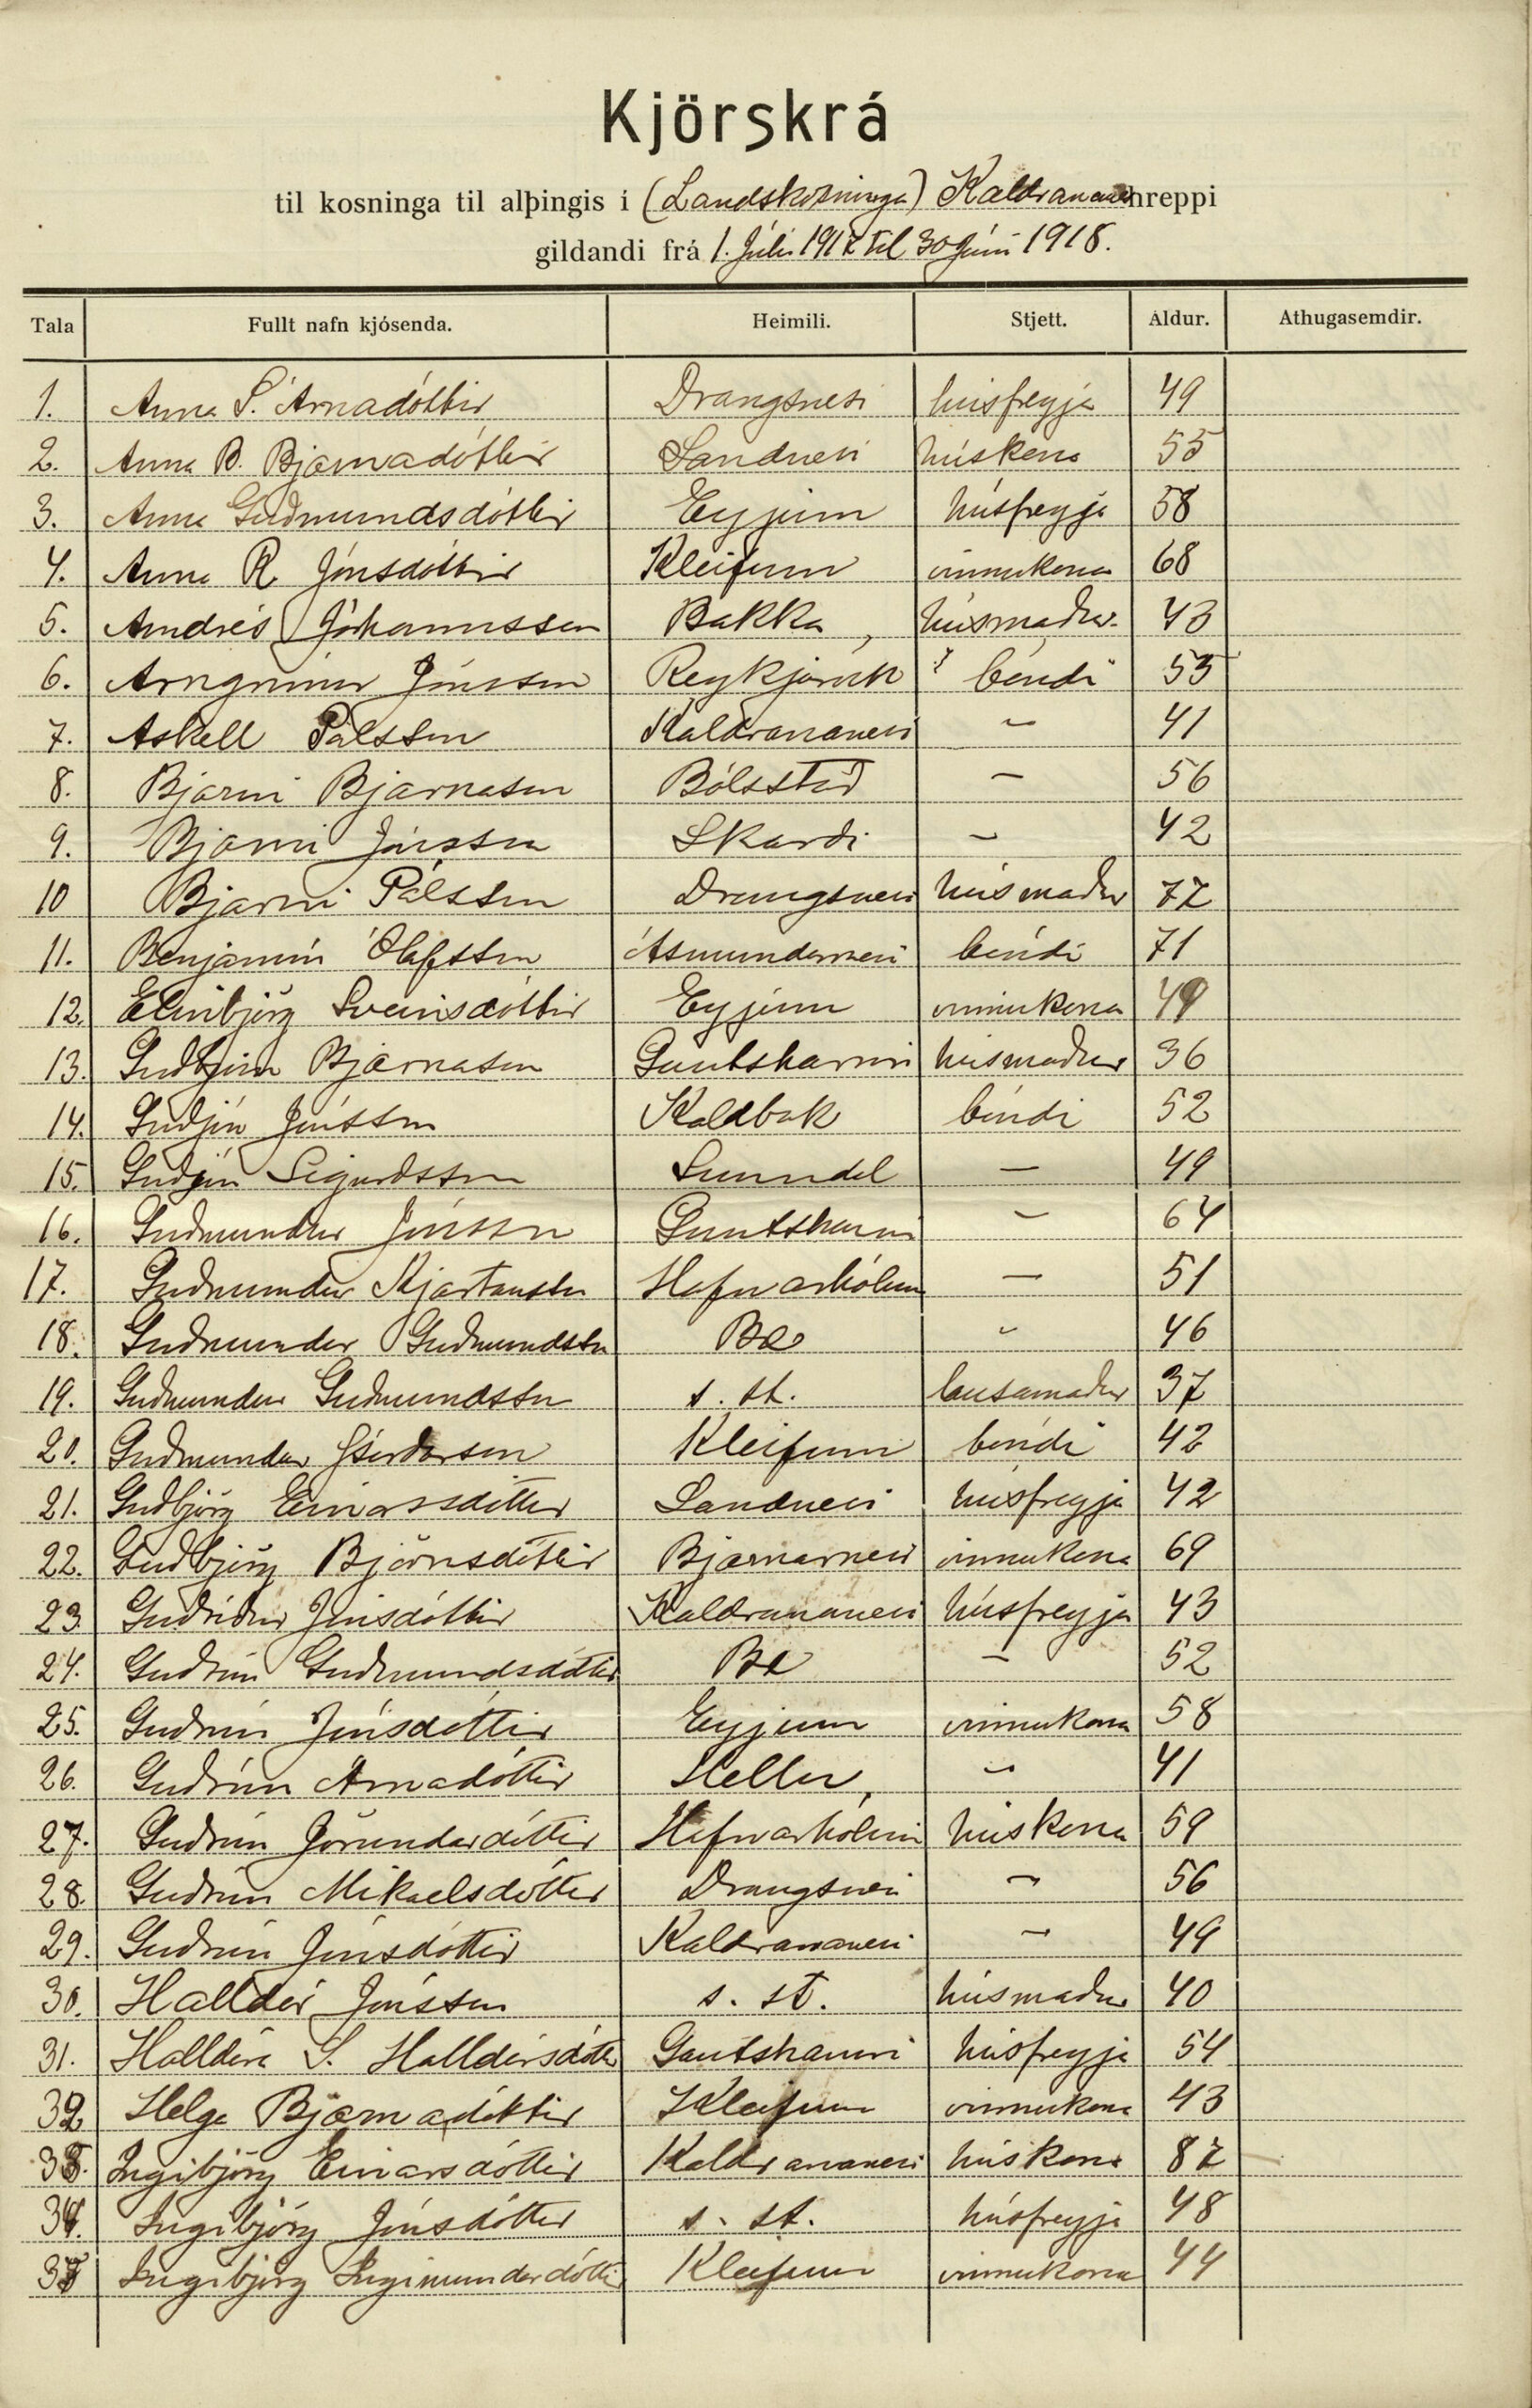 Kjörskrá
til kosninga til alþingis í (Landskosninga) Kaldrananeshreppi
gildandi frá 1. Júlí 1917 til 30 Júní 1918.
Tala Fullt nafn kjósenda. Heimili. Stjett. Aldur. Athugasemdir.
1. Anna S. Árnadóttir Drangsnesi húsfreyja 49
2. Anna B. Bjarnadóttir Sandnesi húskona 55
3. Anna Guðmundsdóttir Eyjum húsfreyja 58
4. Anna R Jónsdóttir Kleifum vinnukona 68
5. Andrés Jóhannsson Bakka húsmaður 43
6. Arngrímur Jónsson Reykjarvík bóndi 55
7. Áskell Pálsson Kaldrananesi – 41
8. Bjarni Bjarnason Bólstað – 56
9. Bjarni Jónsson Skarði – 42
10 Bjarni Pálsson Drangsnesi húsmaður 77
11. Benjamín Ólafsson Ásmundarnesi bóndi 71
12. Elínbjörg Sveinsdóttir Eyjum vinnukona 49
13. Bjarnason Gautshamri húsmaður 36
14. Guðjón Jónsson Kaldbak bóndi 52
15. Guðjón Sigurðsson Sunndal – 49
16. Guðmundur Jónsson Gautshamri – 64
17. Guðmundur Kjartansson Hafnarhólmi – 51
18. Guðmundur Guðmundsson Bæ – 46
19. Guðmundur Guðmundsson s. st. lausamaður 37
20. Guðmundur Kleifum bóndi 42
21. Guðbjörg Einarsdóttir Sandnesi húsfreyja 42
22. Guðbjörg Björnsdóttir Bjarnarnesi vinnukona 69
23. Guðríður Jónsdóttir Kaldrananesi húsfreyja 43
24. Guðrún Guðmundsdóttir Bæ – 52
25. Guðrún Jónsdóttir Eyjum vinnukona 58
26. Guðrún Árnadóttir Hellu – 41
27. Guðrún Jörundardóttir Hafnarhólmi húskona 59
28. Guðrún Mikaelsdóttir Drangsnesi – 56
29. Guðrún Jónsdóttir Kaldrananesi – 49
30. Halldór Jónsson s. st. húsmaður 40
31. Halldóra S. Halldórsdóttir Gautshamri húsfreyja 54
32 Helga Bjarnadóttir Kleifum vinnukona 43
33. Ingibjörg Einarsdóttir Kaldrananesi húskona 87
34. Ingibjörg Jónsdóttir s. st. húsfreyja 48
35 Ingibjörg Ingimundardóttir Kleifum vinnukona 44